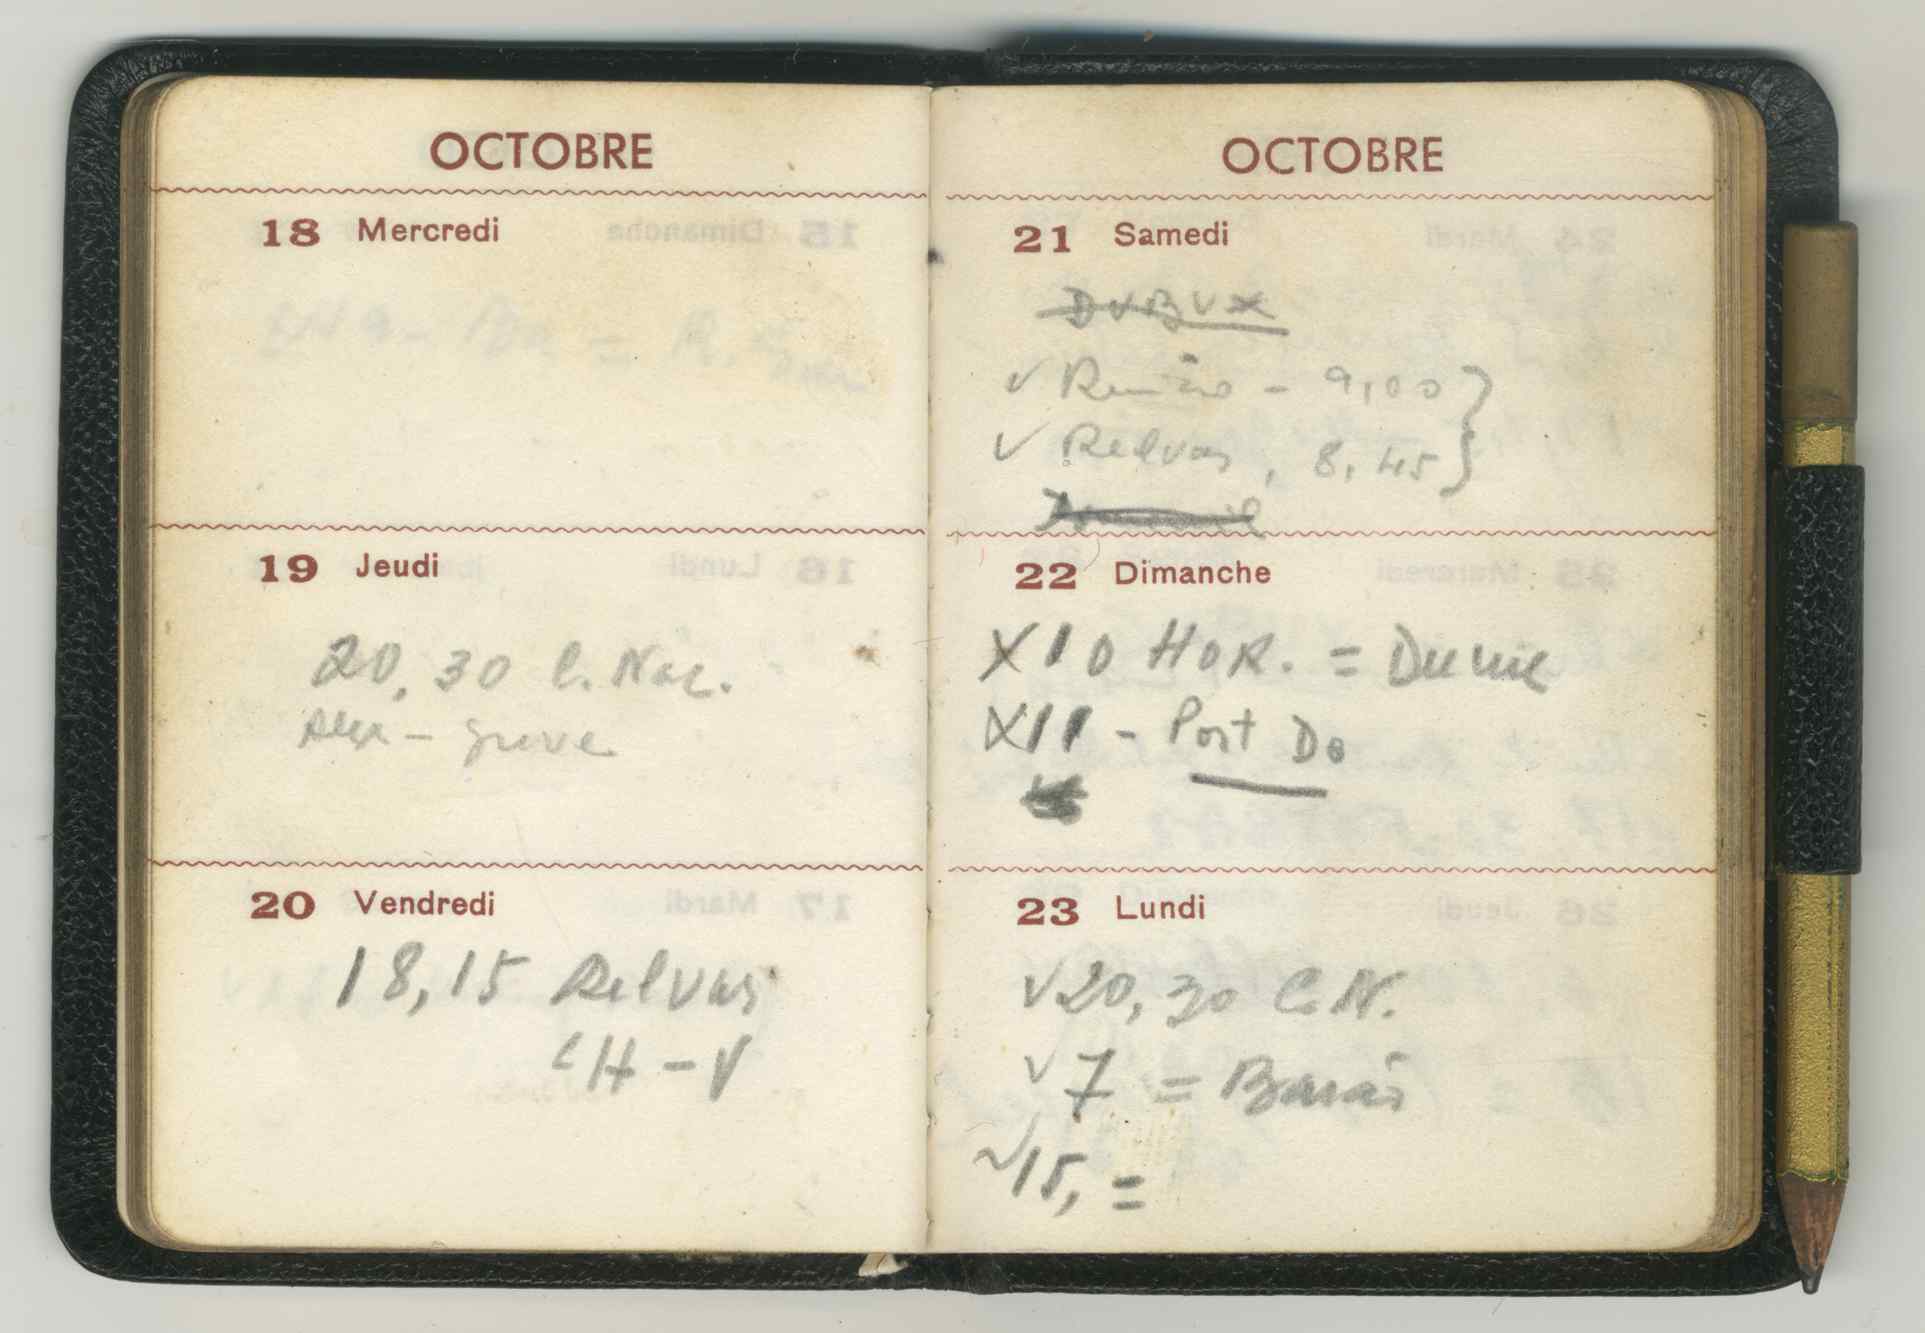 OCTOBRE
18 Mercredi
19 Jeudi
20,30 C. Nac.
Alex - greve
20 Vendredi
18,15 Relvas
CH-V
OCTOBRE
21 Samedi
DVBVX
✓ - 9,00 }
✓ Relvas, 8,45 }
22 Dimanche
X 10 HOR. = Dume
X 11 - Port Do
23 Lundi
✓ 20,30 C.N.
✓ 7 =
✓ 15, =